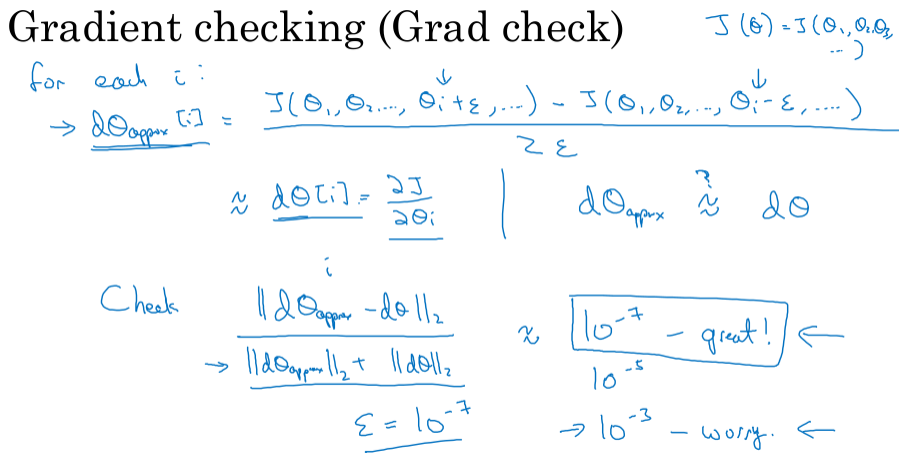 Gradient checking (Grad check)
J(θ) = J(θ₁, θ₂, θ₃, ...)
for each i:
→ dθapprox[i] = J(θ₁, θ₂, ..., θᵢ+ε, ...) - J(θ₁, θ₂, ..., θᵢ-ε, ....) / 2ε
≈ dθ[i] = ∂J/∂θᵢ | dθapprox ≈? dθ
i
Check ||dθapprox - dθ||₂ / → ||dθapprox||₂ + ||dθ||₂ ≈ 10⁻⁷ - great! ←
10⁻⁵
ε = 10⁻⁷ → 10⁻³ - worry. ←